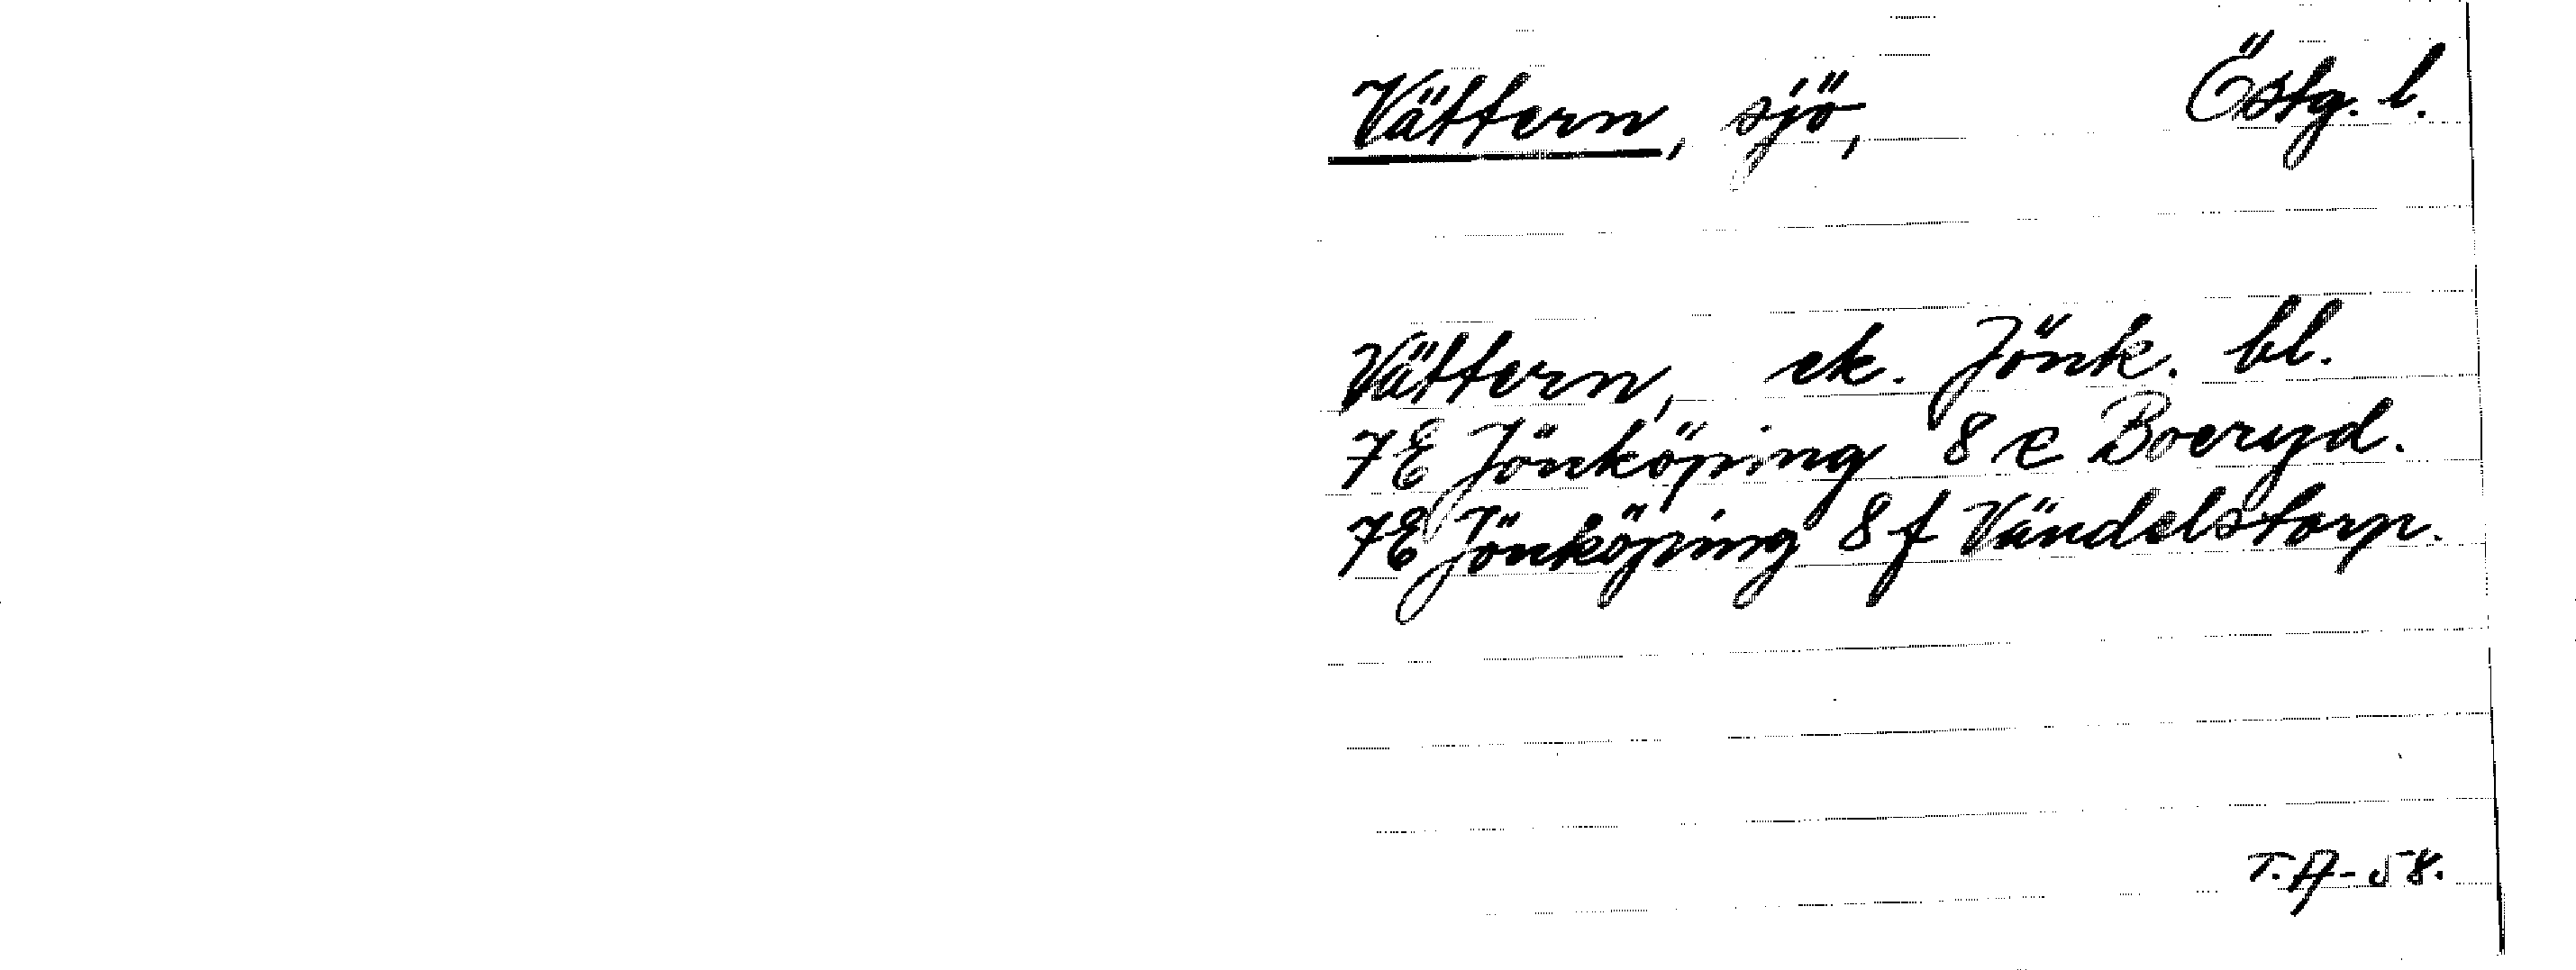 Vättern, sjö, Östg. l.
Vättern, ek. Jönk. bl.
7E Jönköping 8 e Boeryd.
7E Jönköping 8 f Vändelstorp.
T.A-58.